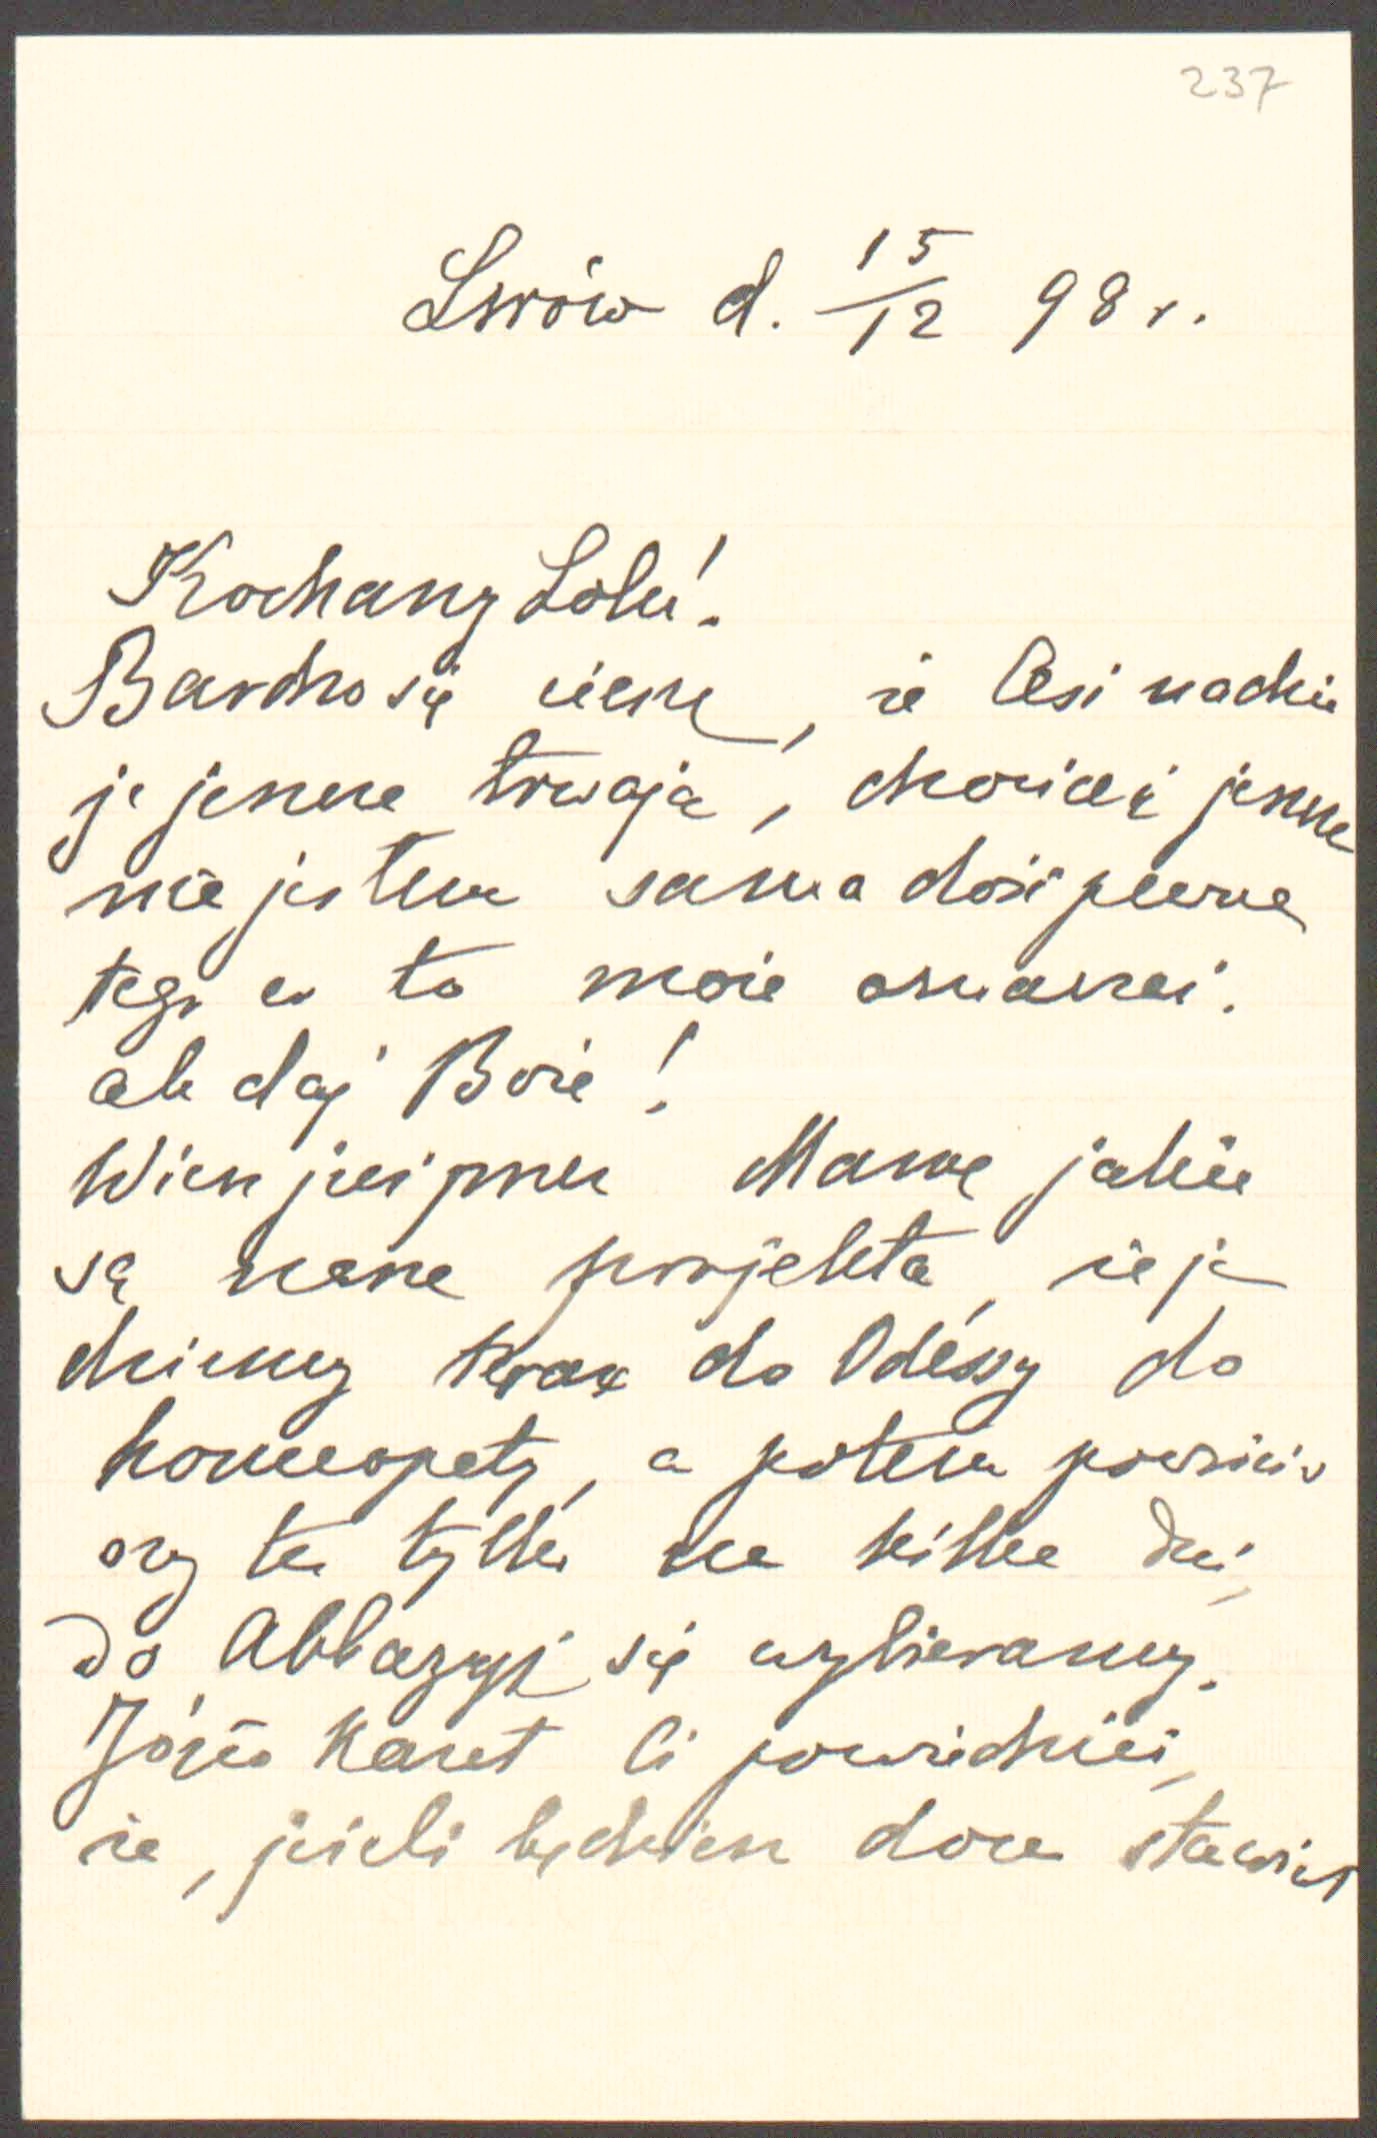 237
Lwów d. 15/12 98 r.
Kochany Lolu!
Bardzo się cieszę, że Cesi nadzie
je jeszcze trwają, chociaż jeszcze
nie jestem sama dość pewną
tego co to może oznaczać.
ale daj Boże!
Wiesz już przez Mamę jakie
są nasze projekta, że je
dziemy teraz do Odessy do
homeopaty, a potem powróciw
szy tu tylko na kilka dni,
do Abbazyi się wybieramy.
Józio kazał Ci powiedzieć,
że, jeżeli będziesz dom stawiał